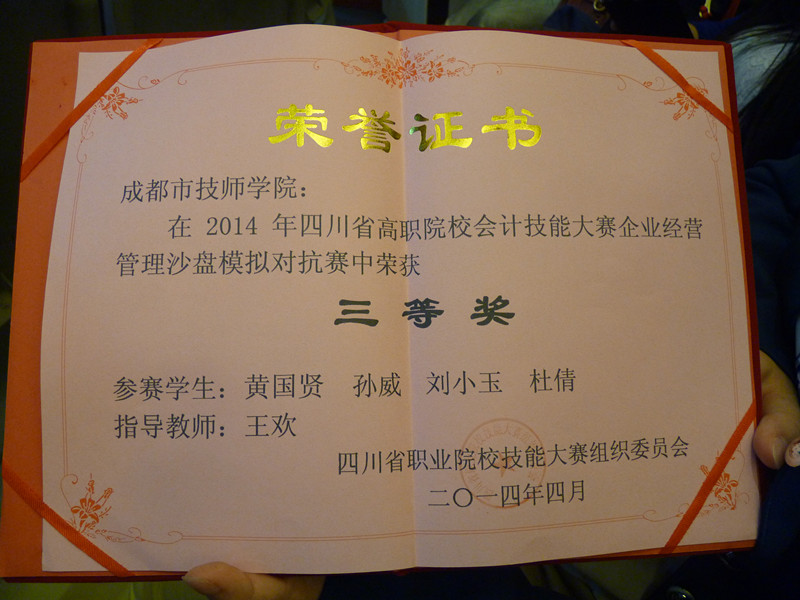 荣誉证书
成都市技师学院：
在 2014 年四川省高职院校会计技能大赛企业经营
管理沙盘模拟对抗赛中荣获
三等奖
参赛学生：黄国贤 孙威 刘小玉 杜倩
指导教师：王欢
四川省职业院校技能大赛组织委员会
二〇一四年四月